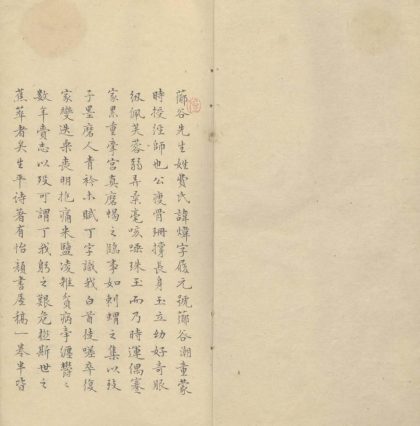 薌谷先生姓費氏諱煒字履元號薌谷湖童蒙
時授經師也公瘦骨珊撐長身玉立幼好奇服
級佩芙蓉弱弄柔毫咳唾珠玉而乃時運偶蹇
家累重摩宮真磨蝎之臨事如刺蝟之集以致
子墨磨人青衿未賦丁字識我白首徒嗟卒復
家變迭乘喪明抱痛米鹽凌雜貧病牽纏鬱
數年賫志以歿可謂丁我躬之艱危極斯世之
蕉萃者矣生平詩著有怡顏書屋稿一卷半皆